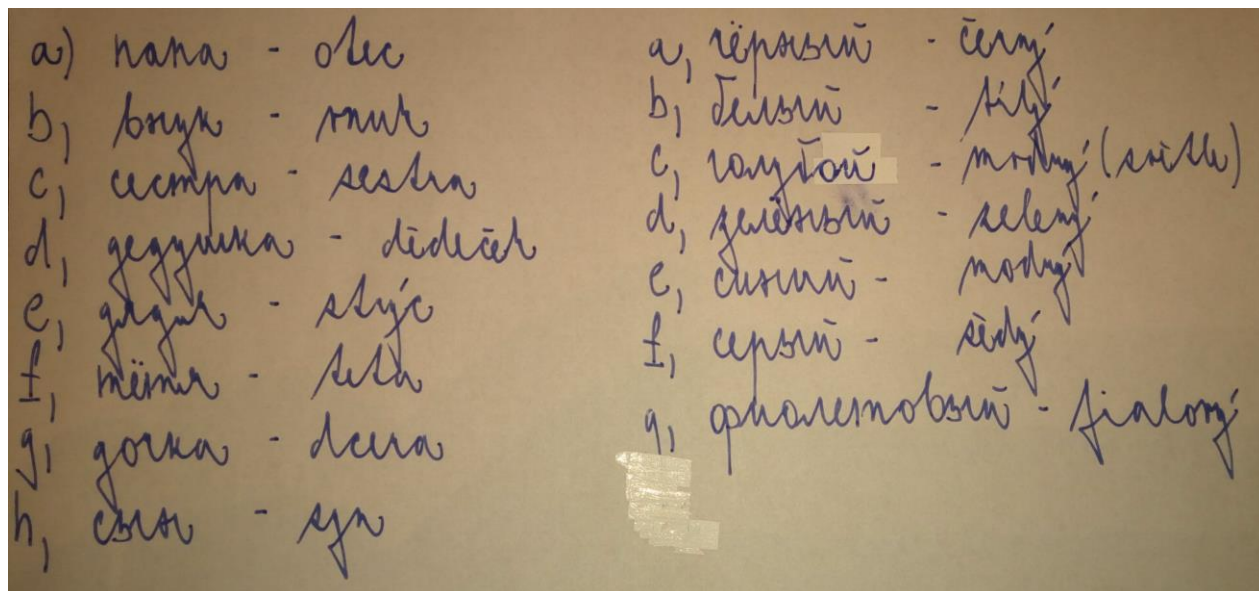 a) папа - otec
b, внук - vnuk
c, сестра - sestra
d, дедушка - dědeček
e, дядя - strýc
f, тётя - teta
g, дочка - dcera
h, сын - syn
a, чёрный - černý
b, белый - bílý
c, голубой - modrý (světle)
d, зелёный - zelený
e, синий - modrý
f, серый - šedý
g, фиолетовый - fialový